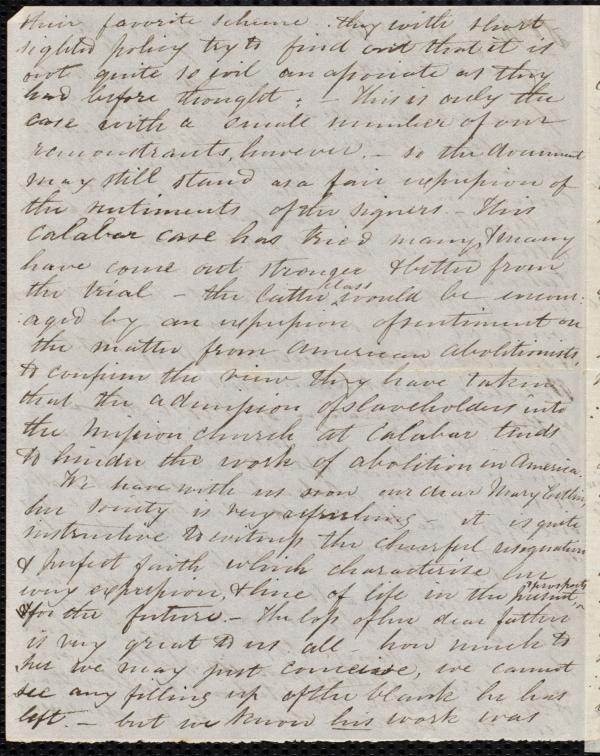 their favorite scheme. they with short
sighted policy try to find out that it is
not quite so evil an aponiate as they
had before thought; - This is only the
case with a small number of our
remonstrants, however. - so the document
may still stand as a fair expression of
the sentiments of the signers - This
Calabar case has tried many, & many
have come out stronger & better from
the trial - the latter class would be encour-
aged by an expression of sentiment on
the matter from American abolitionists,
to confirm the view they have taken
that the admission of slaveholders into
the Mission church at Calabar tends
to hinder the work of abolition in America.
We have with us now our dear Mary Estlin,
her society is very refreshing - it is quite
instructive to witness the cheerful resignation
& perfect faith which characterise her
every expression, & line of life in the present, & prospects
for the future. - The loss of her dear father
is very great to us all - how much to
her we may just conceive, we cannot
see any filling up of the blank he has
left. - but we know his work was